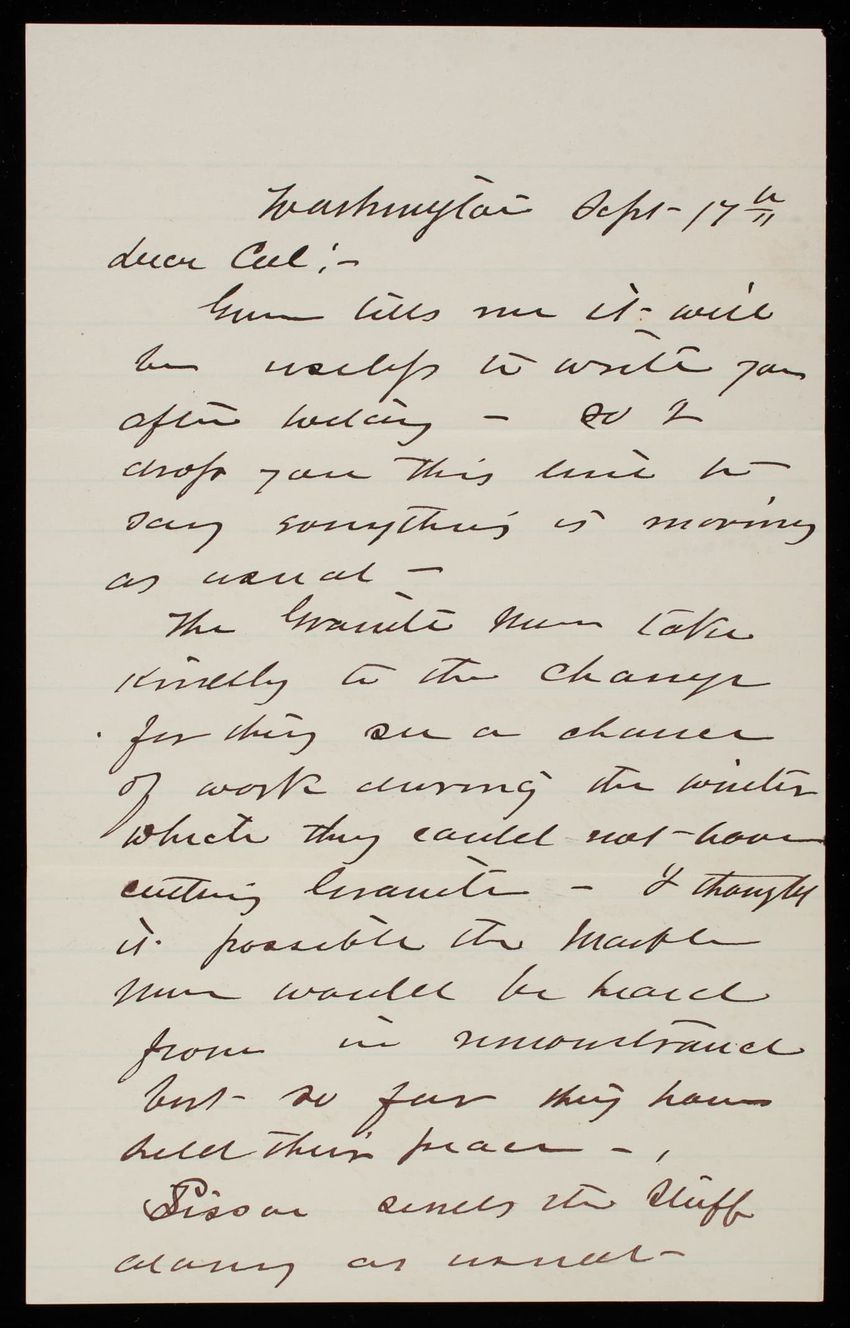 Washington Sept 17th
Dear Col:-
Green tells me it will
be useless to write you
after today - so I
drop you this line to
say everything is moving
as usual -
The Granite Men take
kindly to the change
for they see a chance
of work during the winter
which they could not have
cutting Granite - I thought
it possible the Marble
Men would be heard
from in remonstrance
but so far they have
held their peace -
Sisson sends the Stuff
along as usual -